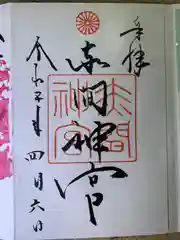 奉拝
赤間神宮
赤間神宮
令和六年
四月六日